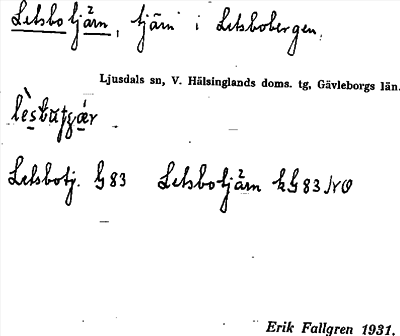 Letsbotjärn, tjärn i Letsbobergen.
Ljusdals sn, V. Hälsinglands doms. tg, Gävleborgs län.
Letsbotj. G 83 Letsbotjärn kG 83 NO
Erik Fallgren 1931.